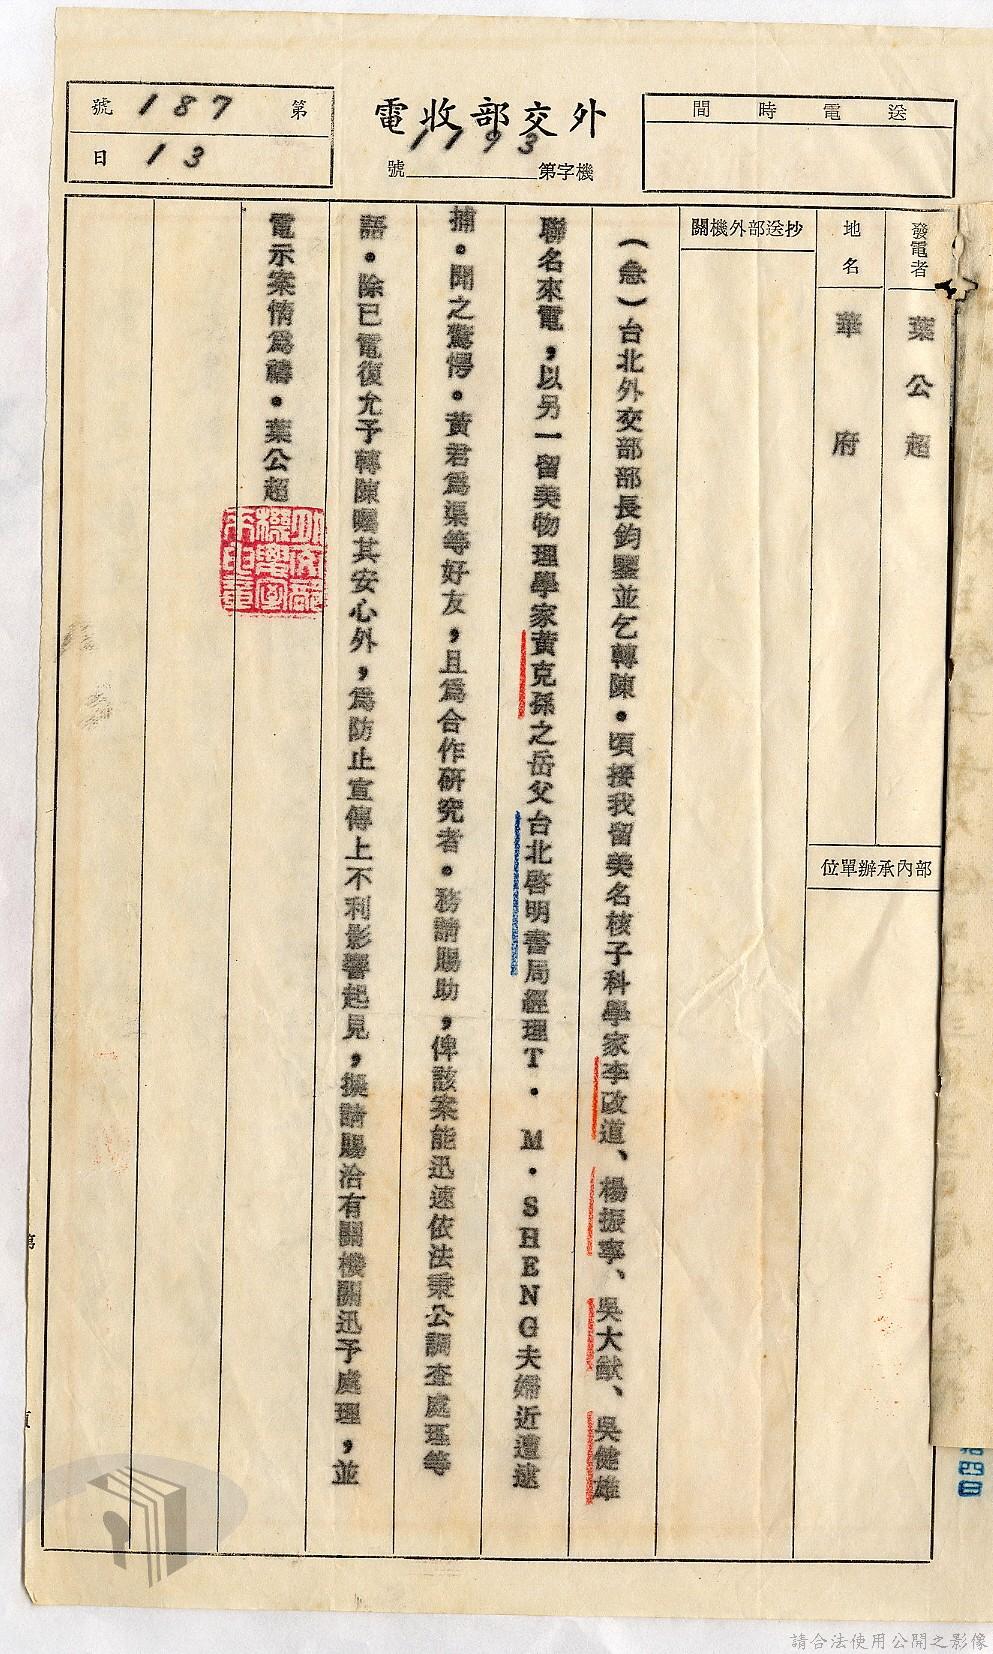 外交部收電
機字第1793號
第187號
13日
送電時間
發電者
葉公超
地名
華府
部內承辦單位
抄送部外機關
（急）台北外交部部長鈞鑒並乞轉陳。頃接我留美名核子科學家李政道、楊振寧、吳大猷、吳健雄
聯名來電，以另一留美物理學家黃克孫之岳父台北啓明書局經理T．M．SHENG夫婦近遭逮
捕。聞之驚愕。黃君為渠等好友，且為合作研究者。務請賜助，俾該案能迅速依法秉公調查處理等
語。除已電復允予轉陳囑其安心外，為防止宣傳上不利影響起見，擬請賜洽有關機關迅予處理，並
電示案情為禱。葉公超
請合法使用公開之影像